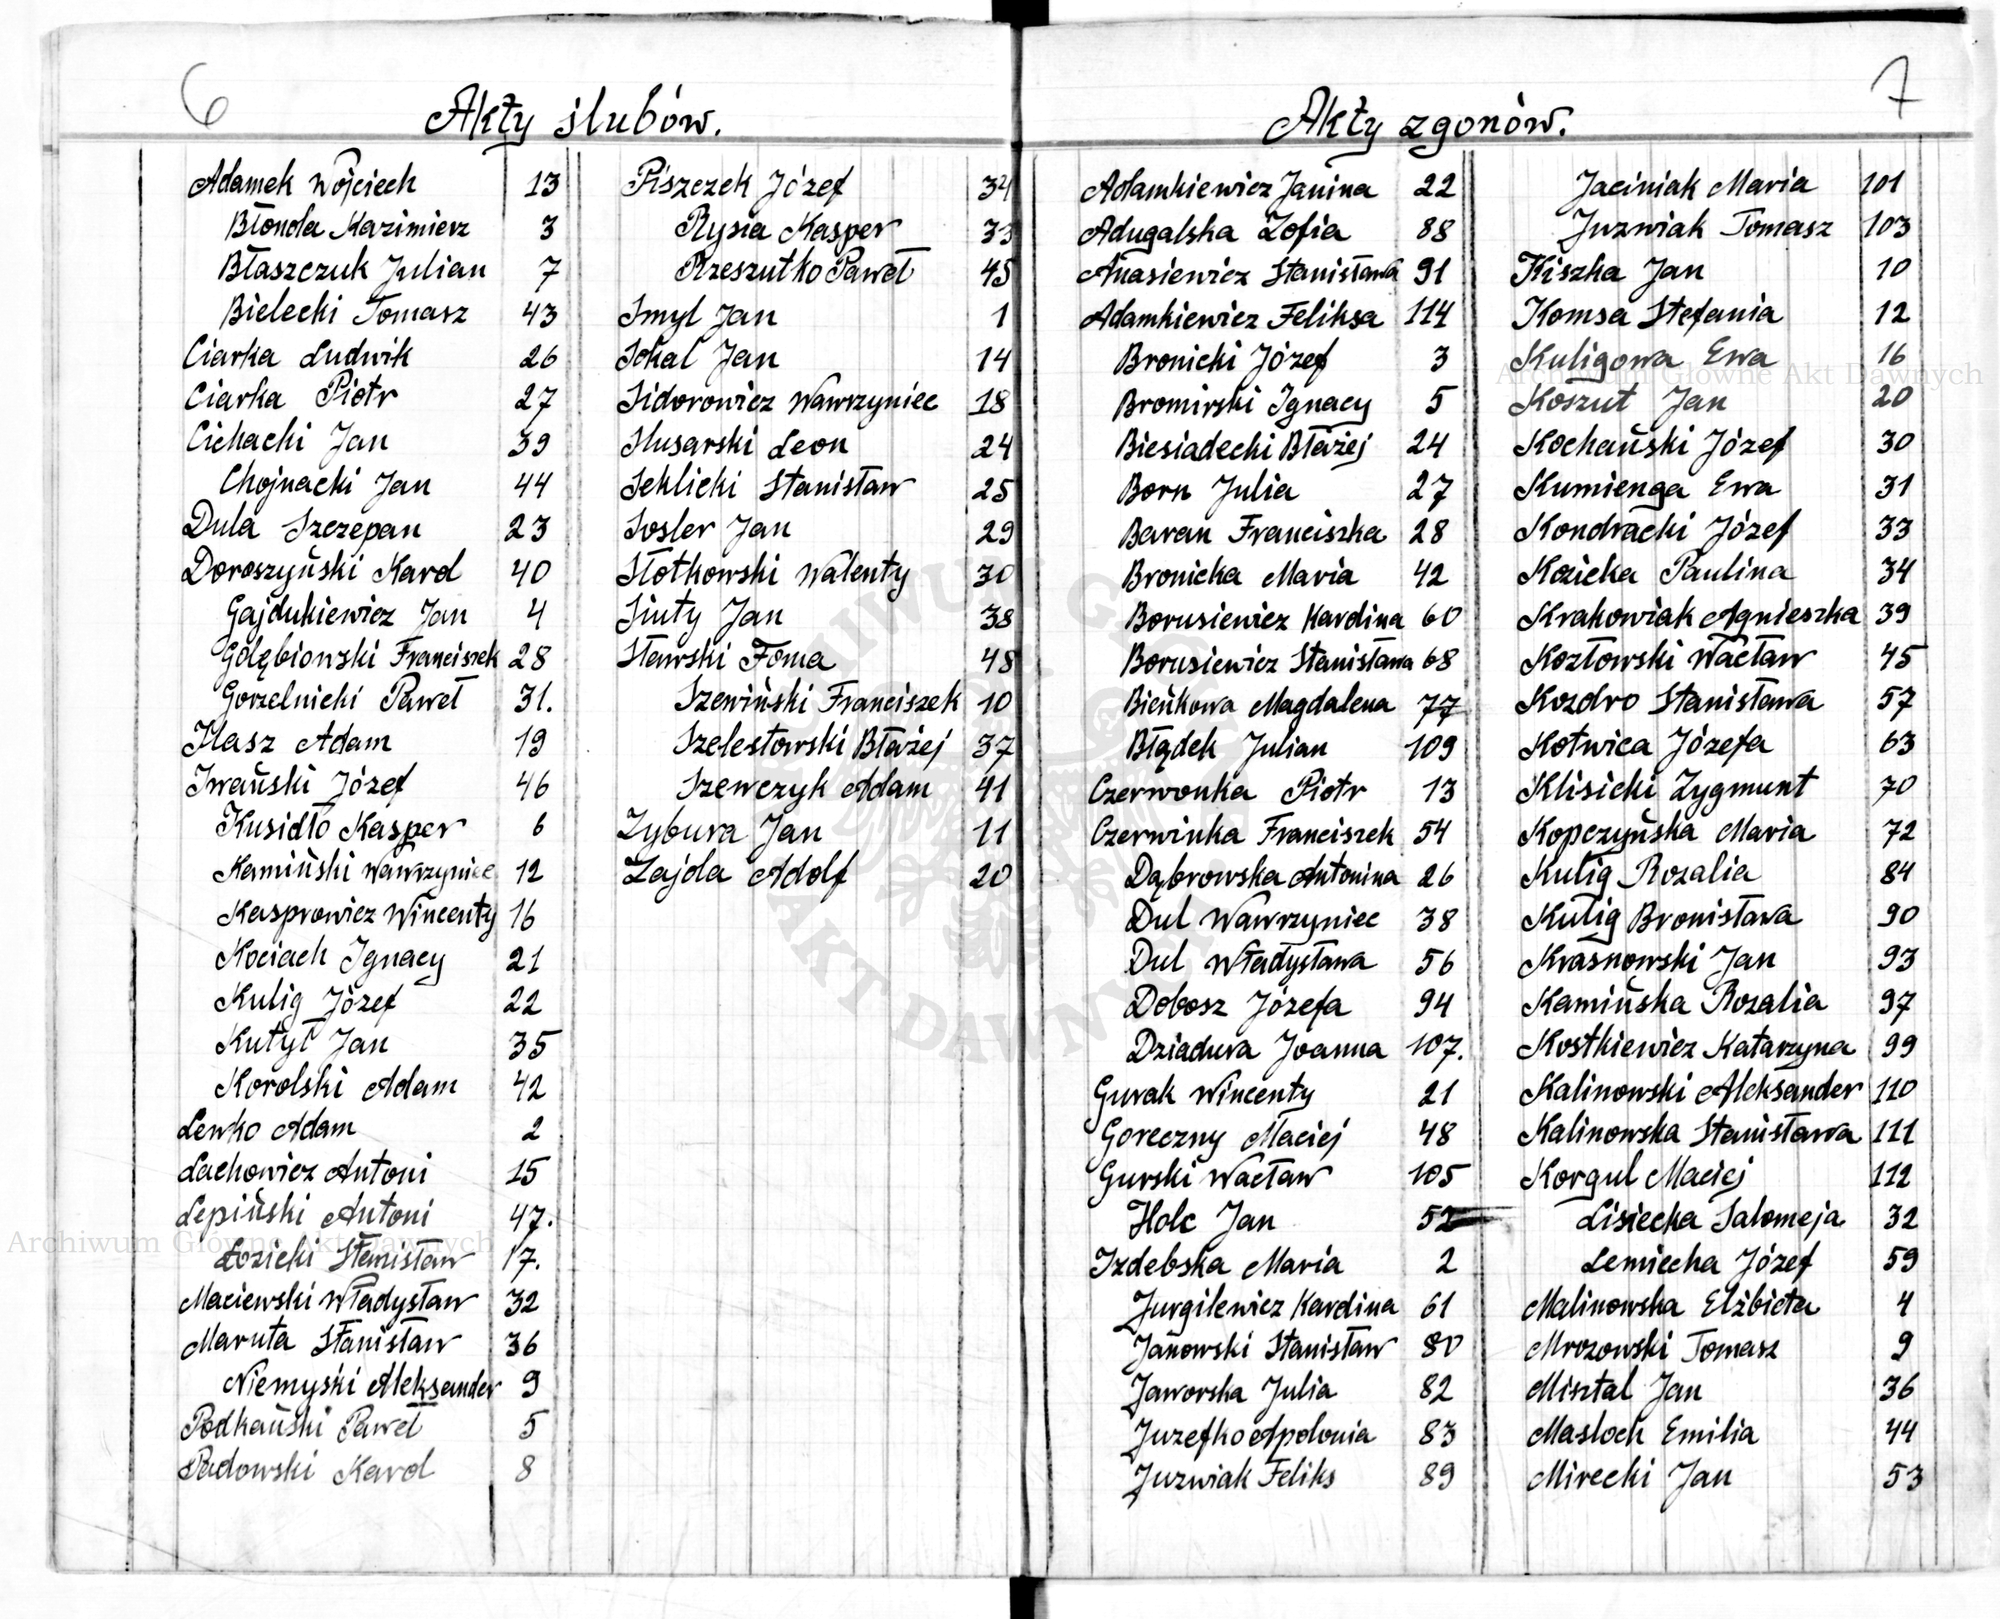 6
Akty ślubów.
Adamek Wojciech 13
Błonda Kazimierz 3
Błaszczuk Julian 7
Bielecki Tomasz 43
Ciarka Ludwik 26
Ciarka Piotr 27
Cichacki Jan 39
Chojnacki Jan 44
Dula Szczepan 23
Doroszyński Karol 40
Gajdukiewicz Jan 4
Gołębiowski Franciszek 28
Gorzelnicki Paweł 31.
Ilasz Adam 19
Iwański Józef 46
Kusidło Kasper 6
Kamiński Wawrzyniec 12
Kasprowicz Wincenty 16
Kociach Ignacy 21
Kulig Józef 22
Kutył Jan 35
Korolski Adam 42
Lewko Adam 2
Lachowicz Antoni 15
Lepiński Antoni 47.
Łozicki Stanisław 17.
Maciewski Władysław 32
Maruta Stanisław 36
Niemyski Aleksander 9
Podkański Paweł 5
Padowski Karol 8
Piszczek Józef 34
Rysia Kasper 33
Rzeszutko Paweł 45
Smyl Jan 1
Sokal Jan 14
Sidorowicz Wawrzyniec 18
Slusarski Leon 24
Seklicki Stanisław 25
Sosler Jan 29
Słotkowski Walenty 30
Siuty Jan 38
Stawski Foma 48
Szewiński Franciszek 10
Szelestowski Błażej 37
Szewczyk Adam 41
Zybura Jan 11
Zajda Adolf 20
7
Akty zgonów.
Adamkiewicz Janina 22
Adugalska Zofia 88
Anasiewicz Stanisława 91
Adamkiewicz Feliksa 114
Bronicki Józef 3
Bromirski Ignacy 5
Biesiadecki Błażej 24
Born Julia 27
Baran Franciszka 28
Bronicka Maria 42
Borusiewicz Karolina 60
Borusiewicz Stanisława 68
Bieńkowa Magdalena 77
Błądek Julian 109
Czerwonka Piotr 13
Czerwinka Franciszek 54
Dąbrowska Antonina 26
Dul Wawrzyniec 38
Dul Władysława 56
Dobosz Józefa 94
Dziadura Joanna 107.
Gurak Wincenty 21
Goreczny Maciej 48
Gurski Wacław 105
Holc Jan 52
Izdebska Maria 2
Jurgilewicz Karolina 61
Janowski Stanisław 80
Jaworska Julia 82
Juzefko Apolonia 83
Juzwiak Feliks 89
Jaciniak Maria 101
Juzwiak Tomasz 103
Kiszka Jan 10
Komsa Stefania 12
Kuligowa Ewa 16
Koszut Jan 20
Kochański Józef 30
Kumienga Ewa 31
Kondracki Józef 33
Kozicka Paulina 34
Krakowiak Agnieszka 39
Kozłowski Wacław 45
Kozdro Stanisława 57
Kotwica Józefa 63
Klisicki Zygmunt 70
Kopczyńska Maria 72
Kulig Rozalia 84
Kulig Bronisława 90
Krasnowski Jan 93
Kamińska Rozalia 97
Kostkiewicz Katarzyna 99
Kalinowski Aleksander 110
Kalinowska Stanisława 111
Korgul Maciej 112
Lisiecka Salomeja 32
Lemiecha Józef 59
Malinowska Elżbieta 4
Mrozowski Tomasz 9
Misztal Jan 36
Masloch Emilia 44
Mirecki Jan 53
Archiwum Główne Akt Dawnych
Archiwum Główne Akt Dawnych
ARCHIWUM GŁÓWNE AKT DAWNYCH